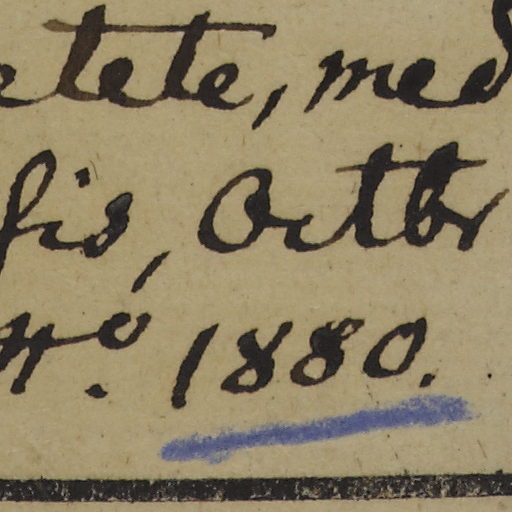 etete, med
fis, Octbr
No. 1880.